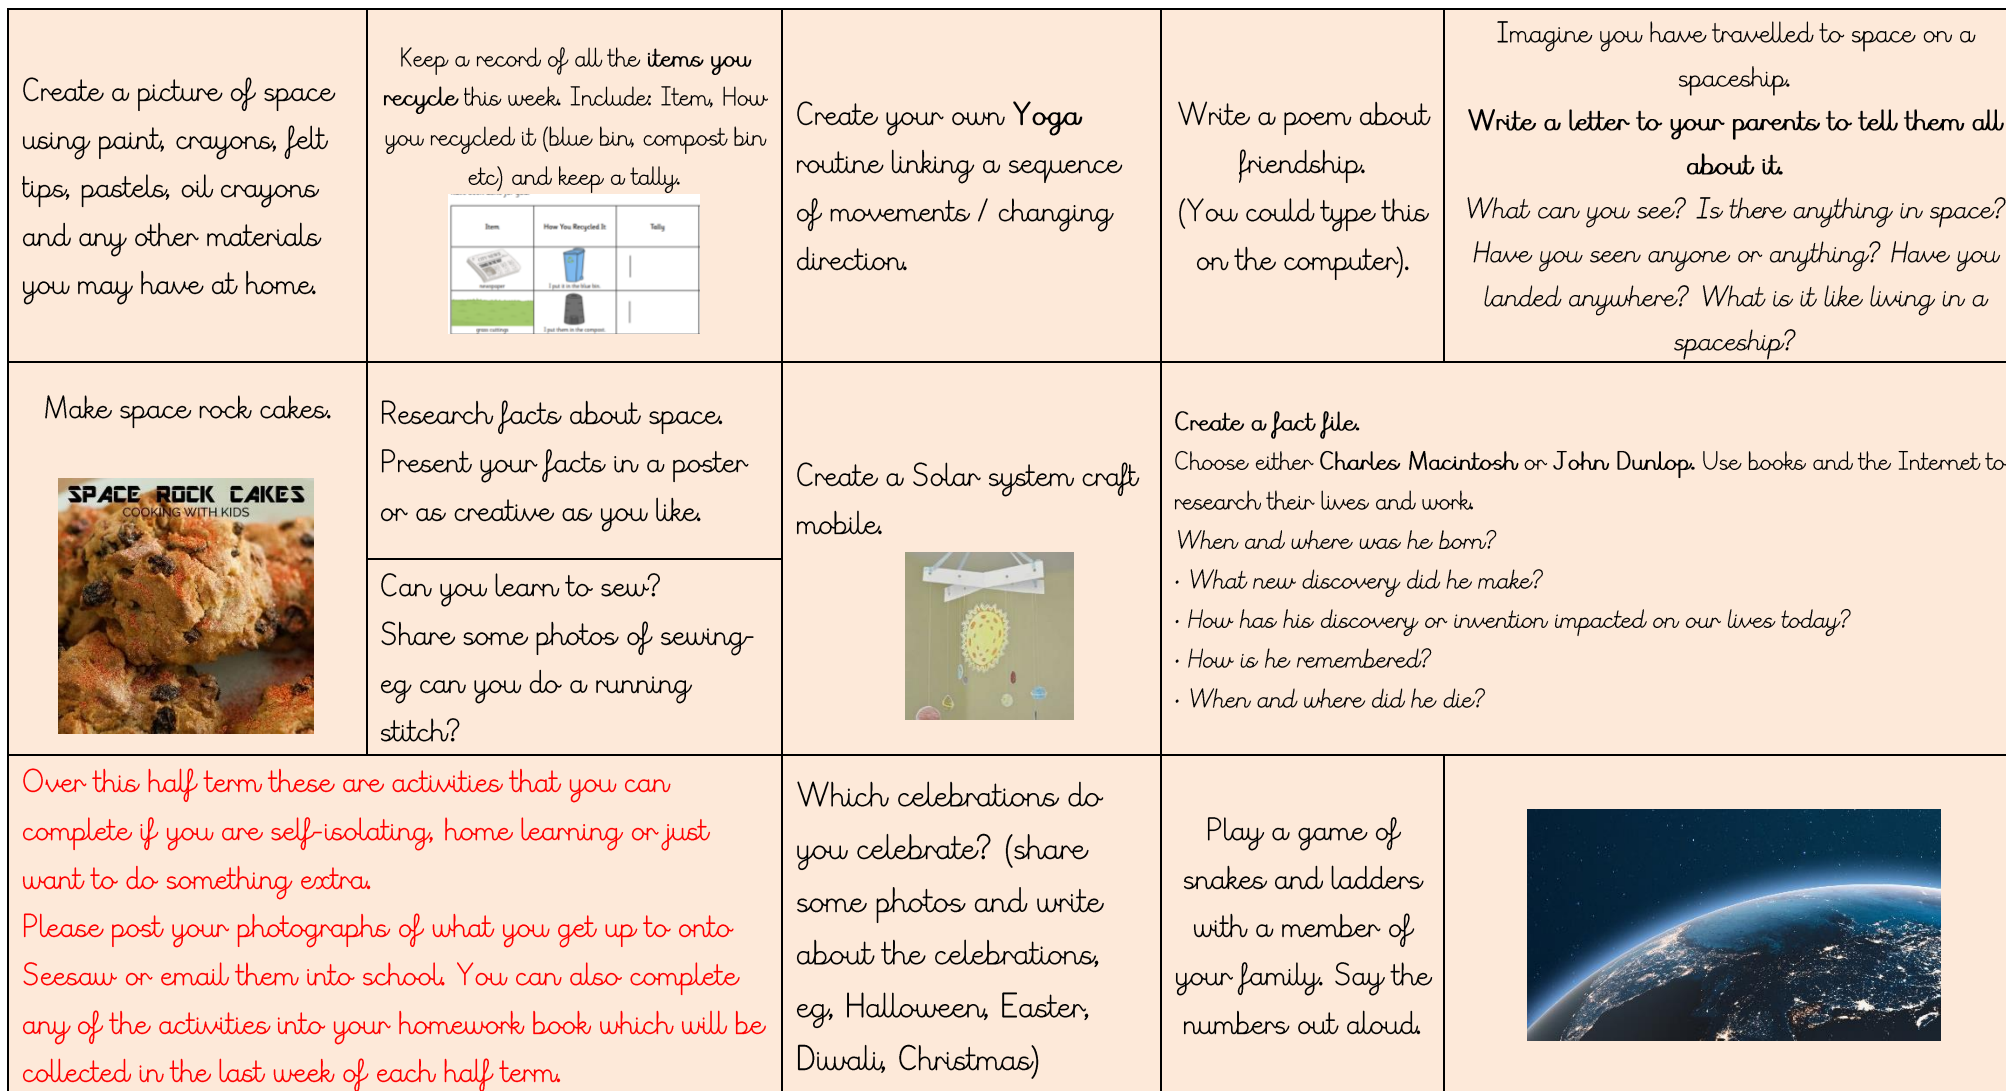 Create a picture of space
using paint, crayons, felt
tips, pastels, oil crayons
and any other materials
you may have at home.
Keep a record of all the items you
recycle this week. Include: Item, How
you recycled it (blue bin, compost bin
etc) and keep a tally.
Item How You Recycled It Tally
newspaper I put it in the blue bin.
grass cuttings I put them in the compost.
Create your own Yoga
routine linking a sequence
of movements / changing
direction.
Write a poem about
friendship.
(You could type this
on the computer).
Imagine you have travelled to space on a
spaceship.
Write a letter to your parents to tell them all
about it.
What can you see? Is there anything in space?
Have you seen anyone or anything? Have you
landed anywhere? What is it like living in a
spaceship?
Make space rock cakes.
SPACE ROCK CAKES
COOKING WITH KIDS
Research facts about space.
Present your facts in a poster
or as creative as you like.
Can you learn to sew?
Share some photos of sewing-
eg can you do a running
stitch?
Create a Solar system craft
mobile.
Create a fact file.
Choose either Charles Macintosh or John Dunlop. Use books and the Internet to
research their lives and work.
When and where was he born?
• What new discovery did he make?
• How has his discovery or invention impacted on our lives today?
• How is he remembered?
• When and where did he die?
Over this half term these are activities that you can
complete if you are self-isolating, home learning or just
want to do something extra.
Please post your photographs of what you get up to onto
Seesaw or email them into school. You can also complete
any of the activities into your homework book which will be
collected in the last week of each half term.
Which celebrations do
you celebrate? (share
some photos and write
about the celebrations,
eg, Halloween, Easter,
Diwali, Christmas)
Play a game of
snakes and ladders
with a member of
your family. Say the
numbers out aloud.